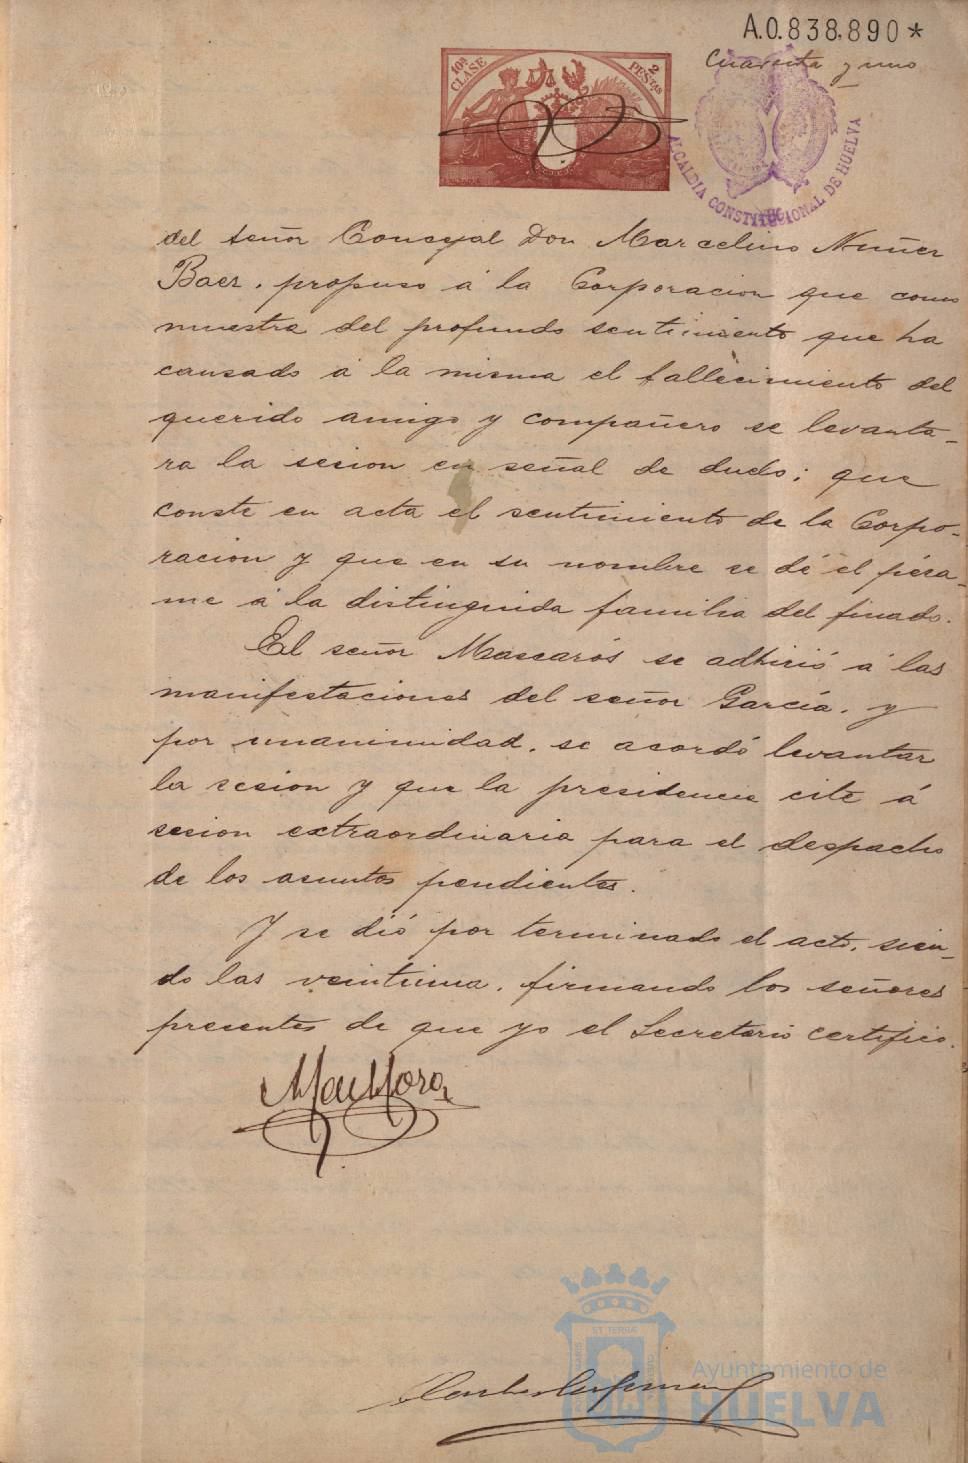 A.0.838.890*
Cuarenta y uno
10ª CLASE
2 PESTAS
ALCALDIA CONSTITUCIONAL DE HUELVA
del señor Concejal Don Marcelino Nuñez
Baez, propuso á la Corporacion que como
muestra del profundo sentimiento que ha
causado á la misma el fallecimiento del
querido amigo y compañero se levanta-
ra la sesion en señal de duelo; que
conste en acta el sentimiento de la Corpo-
racion y que en su nombre se dé el pésa-
me á la distinguida familia del finado.
El señor Mascarós se adhirió á las
manifestaciones del señor García, y
por unanimidad, se acordó levantar
la sesion y que la presidencia cite á
sesion extraordinaria para el despacho
de los asuntos pendientes.
Y se dió por terminado el acto, sien-
do las veintiuna, firmando los señores
presentes de que yo el Secretario certifico.
Ayuntamiento de
HUELVA